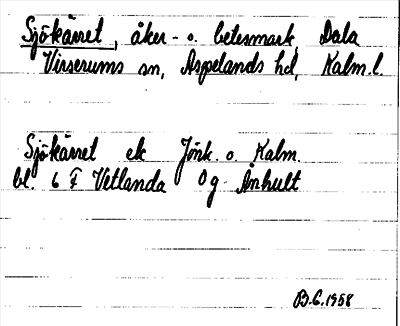 Sjökärret, åker- o. betesmark, Dala
Virserums sn, Aspelands hd, Kalm. l.
Sjökärret ek Jönk. o. Kalm.
bl. 6 F Vetlanda Og Ånhult
B.G. 1958